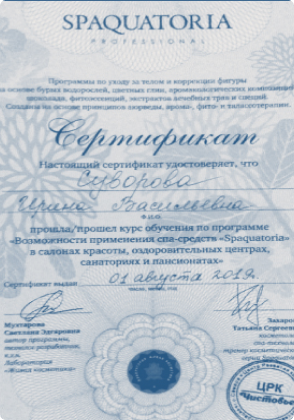 SPAQUATORIA
PROFESSIONAL
Программы по уходу за телом и коррекции фигуры
на основе бурых водорослей, цветных глин, аромакологических композиций,
шоколада, фитоэссенций, экстрактов целебных трав и специй.
Созданы на основе принципов аюрведы, арома-, фито- и талассотерапии.
Сертификат
Настоящий сертификат удостоверяет, что
Суворова
Ирина Васильевна
Ф.И.О.
прошла/прошел курс обучения по программе
«Возможности применения спа-средств «Spaquatoria»
в салонах красоты, оздоровительных центрах,
санаториях и пансионатах»
Сертификат выдан 01 августа 2019г.
число, месяц, год
Мухтарова
Светлана Эдгаровна
автор программы,
Лаборатория
«Живая косметика»
Татьяна Сергеевна
ЦРК